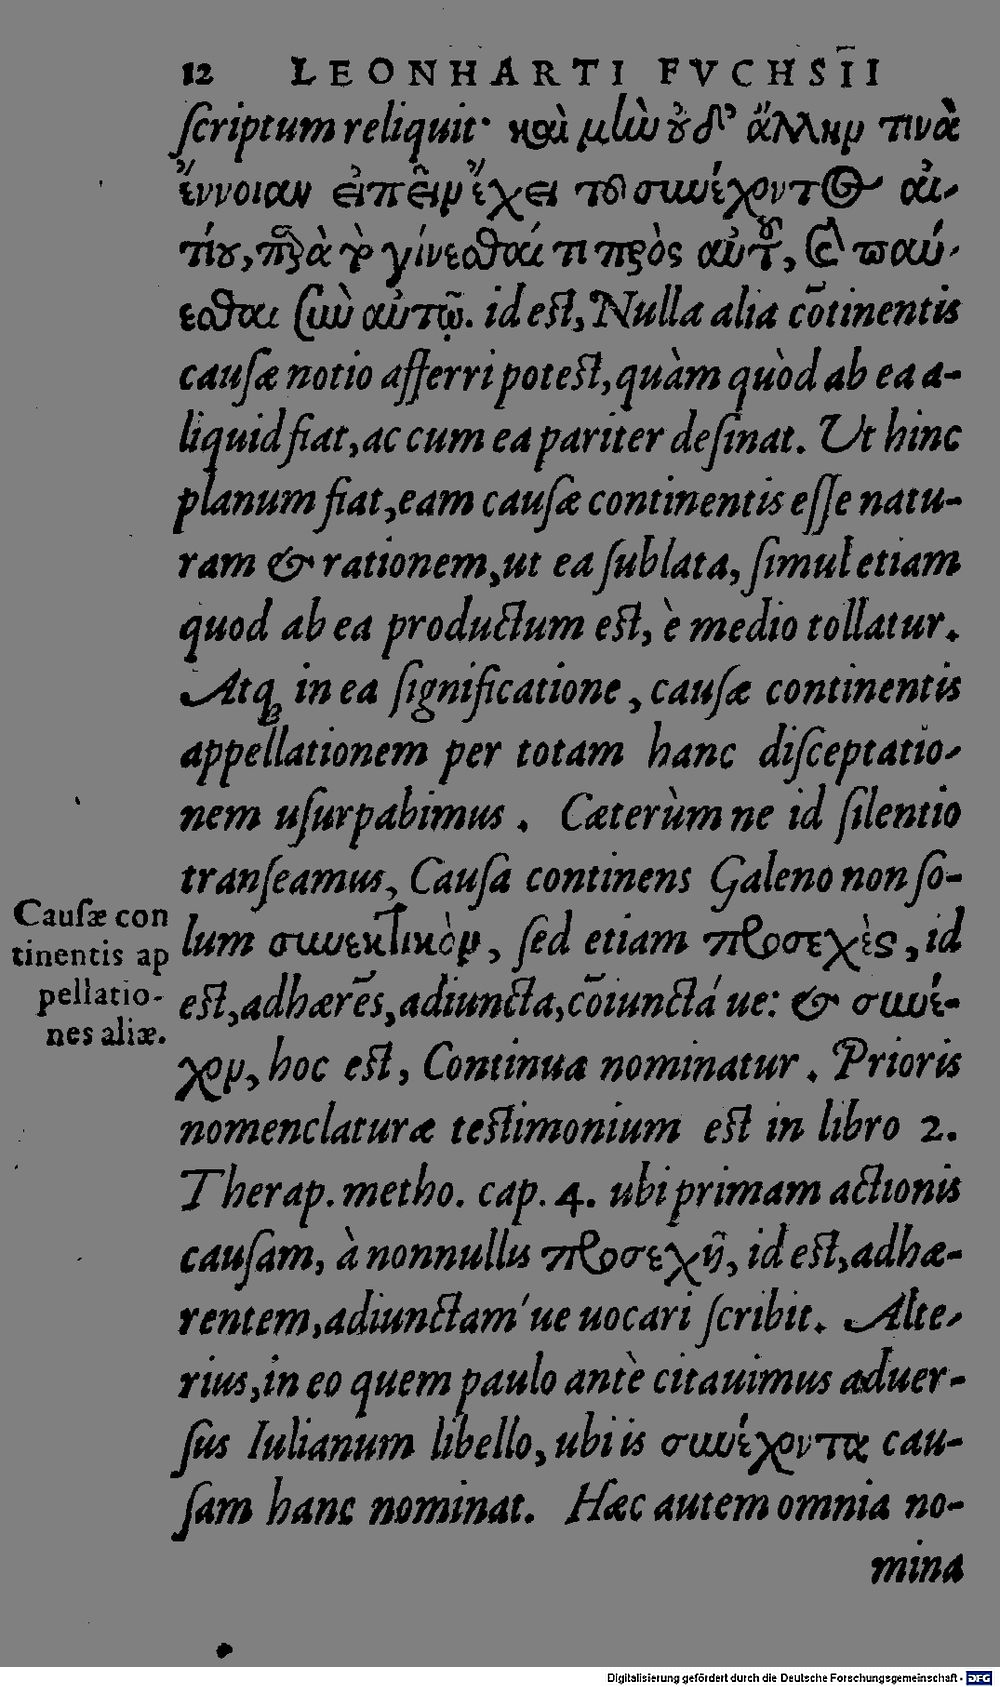 12 LEONHARTI FVCHSII
ſcriptum reliquit· καὶ μὴν οὐδ' ἄλλην τινὰ
ἔννοιαν εἰπεῖν ἔχει τοῦ συνέχοντος αἰ-
τίου, παρὰ γίνεσθαί τι πρὸς αὐτοῦ, καὶ παύ-
εσθαι σὺν αὐτῷ. id eſt, Nulla alia cōtinentis
cauſæ notio afferri poteſt, quàm quòd ab ea a-
liquid fiat, ac cum ea pariter deſinat. Ut hinc
planum fiat, eam cauſæ continentis eſſe natu-
ram & rationem, ut ea ſublata, ſimul etiam
quod ab ea productum eſt, è medio tollatur.
Atq; in ea ſignificatione, cauſæ continentis
appellationem per totam hanc diſceptatio-
nem uſurpabimus. Cæterùm ne id ſilentio
tranſeamus, Cauſa continens Galeno non ſo-
Cauſæ con
tinentis ap
pellatio-
nes aliæ.
lum συνεκτικὸν, ſed etiam προσεχὲς, id
eſt, adhærēs, adiuncta, cōiunctá ue: & συνέ-
χον, hoc eſt, Continua nominatur. Prioris
nomenclaturæ teſtimonium eſt in libro 2.
Therap. metho. cap. 4. ubi primam actionis
cauſam, à nonnullis προσεχῆ, id eſt, adhæ-
rentem, adiunctam' ue uocari ſcribit. Alte-
rius, in eo quem paulo antè citauimus aduer-
ſus Iulianum libello, ubi is συνέχοντα cau-
ſam hanc nominat. Hæc autem omnia no-
mina
Digitalisierung gefördert durch die Deutsche Forschungsgemeinschaft - DFG